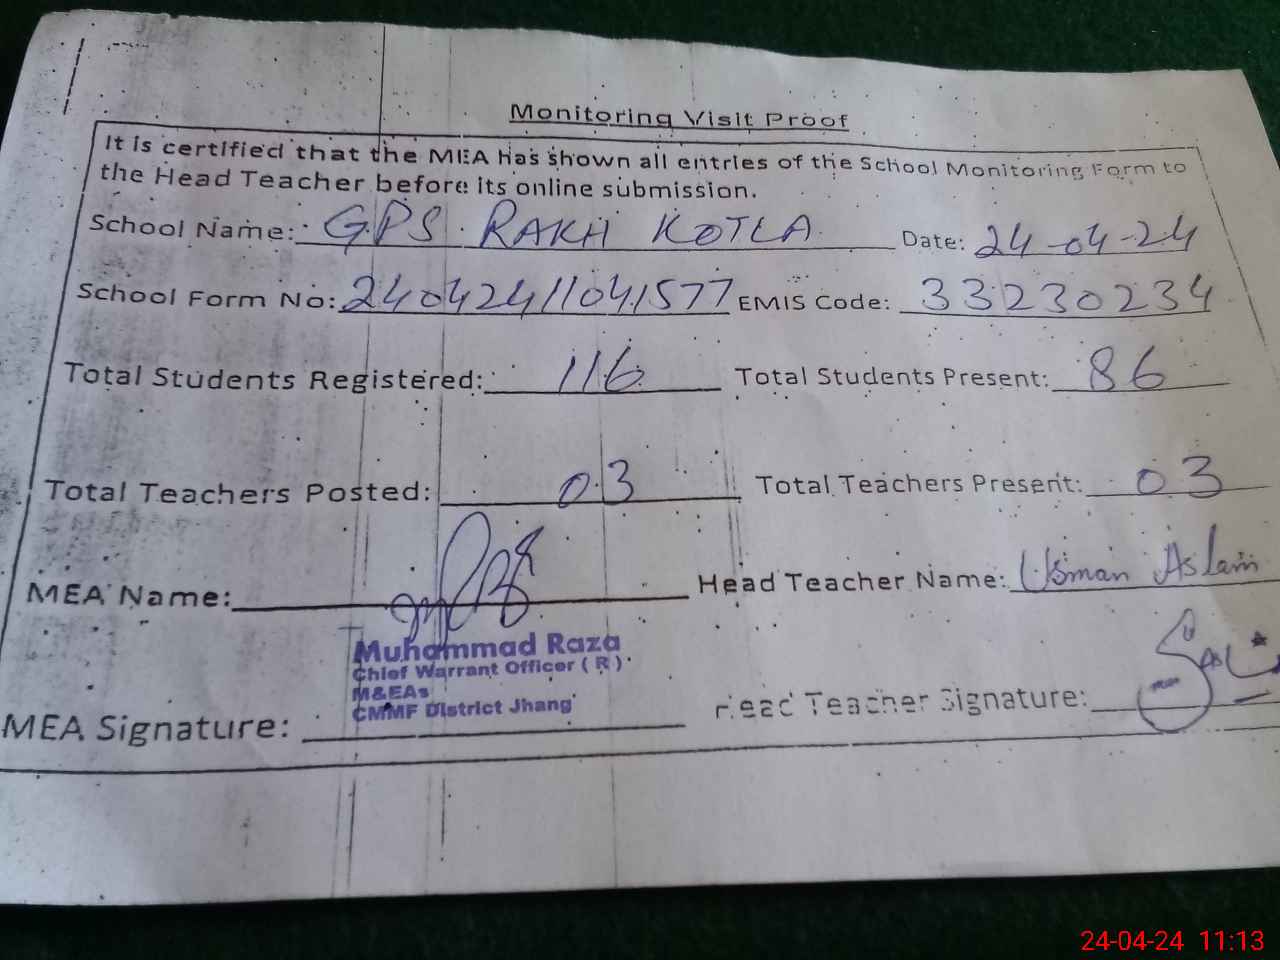 Monitoring Visit Proof
It is certified that the MEA has shown all entries of the School Monitoring Form to
the Head Teacher before its online submission.
School Name: GPS RAKH KOTLA Date: 24-04-24
School Form No: 24042411041577 EMIS Code: 33230234
Total Students Registered: 116 Total Students Present: 86
Total Teachers Posted: 03 Total Teachers Present: 03
MEA Name: Head Teacher Name: Usman Aslam
Muhammad Raza
Chief Warrant Officer ( R )
M&EAs
CMMF District Jhang
MEA Signature: Head Teacher Signature:
24-04-24 11:13